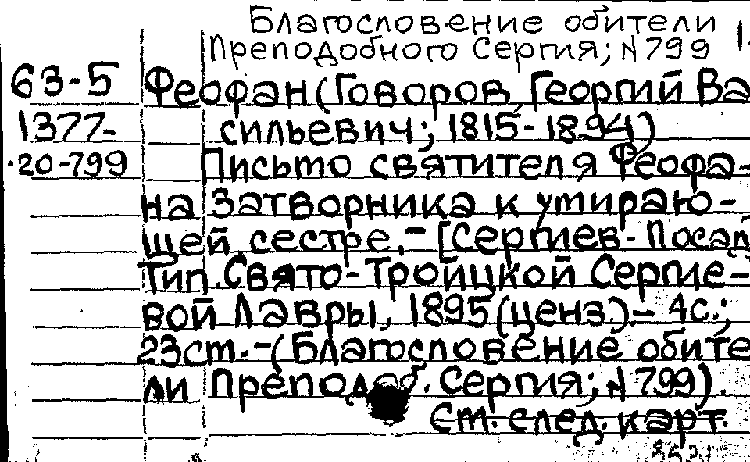 Благословение обители
Преподобного Сергия; N 799
63-5 Феофан (Говоров, Георгий Ва
1377- сильевич; 1815-1894)
20-799 Письмо святителя Феофа-
на Затворника к умираю-
щей сестре. - [Сергиев-Посад
Тип. Свято-Троицкой Сергие-
вой Лавры, 1895 (ценз). - 4с.;
23см. - (Благословение обите
ли Преподоб. Сергия; N 799).
См. след. карт.